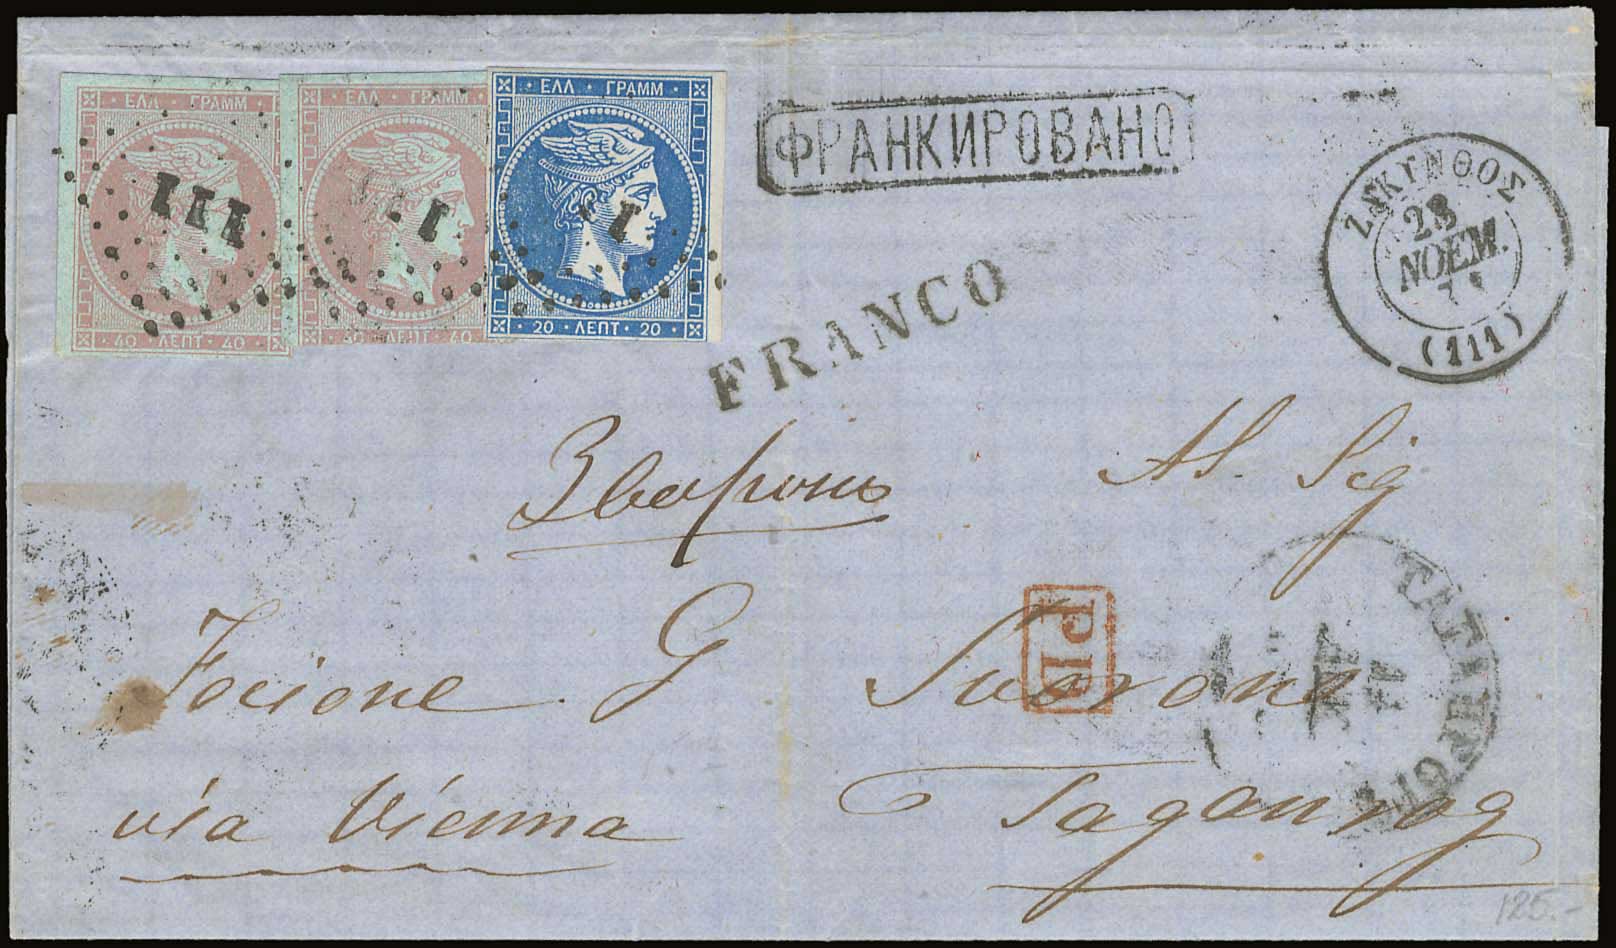 ΕΛΛ · ΓΡΑΜΜ
40 · ΛΕΠΤ · 40
ΕΛΛ · ΓΡΑΜΜ
40 · ΛΕΠΤ · 40
ΕΛΛ · ΓΡΑΜΜ
20 · ΛΕΠΤ · 20
111
1
1
ФРАНКИРОВАНО
ΖΑΚΥΝΘΟΣ
23
ΝΟΕΜ.
(111)
FRANCO
Al. Sig
PD
Focione G
via Vienna
Taganrog
125.-